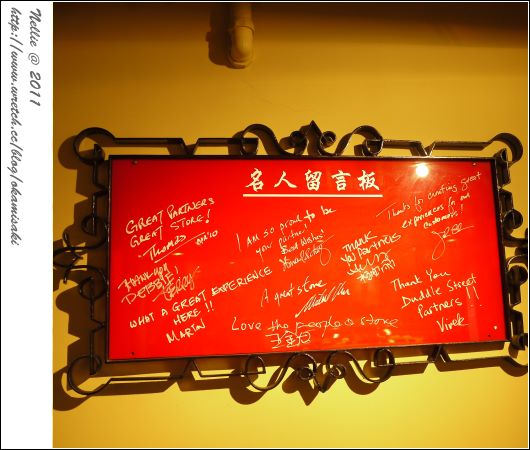 Nellie @ 2011
http://www.wretch.cc/blog/okamisaki
名人留言板
GREAT PARTNERS
GREAT STORE!
Thomas
THANK YOU
DEBBIE
WHAT A GREAT EXPERIENCE
HERE!!
MARTIN
I am so proud to be
your partner!
Best Wishes
A great store
Love the people & store
Thanks for creating great
experiences for our
customers!
THANK
YOU PARTNERS
Thank You
Duddle Street
Partners!!
Vivek